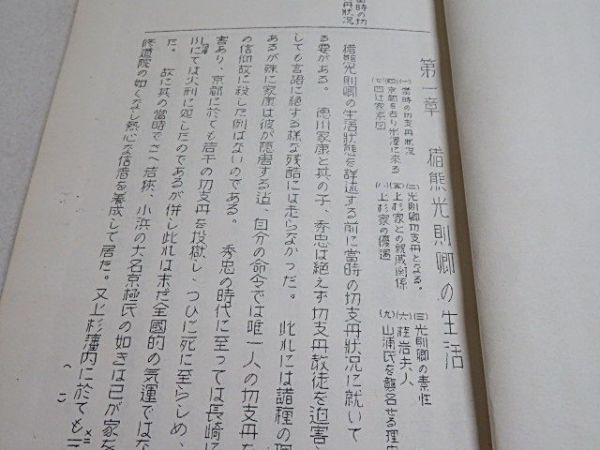 第一章　猪熊光則卿の生活
(一)當時の切支丹狀況
(二)光則卿切支丹となる。
(三)光則卿の素性
(四)京都を去り米澤に來る
(五)上杉家との親戚関係
(六)桂岩夫人
(七)四辻家系図
(八)上杉家の優遇
(九)山浦氏を襲名せる理由
猪熊光則卿の生活狀態を詳述する前に當時の切支丹狀況に就いて
る要がある。　德川家康と其の子、秀忠は絶えず切支丹教徒を迫害
しても言語に絶する様な残酷には走らなかった。　此れには諸種の理
あるが殊に家康は彼が隠居する迄、自分の命令では唯一人の切支丹を
の信仰故に殺した例はないのである。　秀忠の時代に至っては長崎に
害あり、京都に於ても若干の切支丹を投獄し、つひに死に至らしめ、
にては火刑に処したのであるが併し此れは未だ全國的の気運ではな
た。　故に其の當時でさへ若狹、小浜の大名京極氏の如きは己が家を
修道院の如くなし熱心な信者を養成して居た。又上杉藩內に於ても
當時の切
支丹狀況